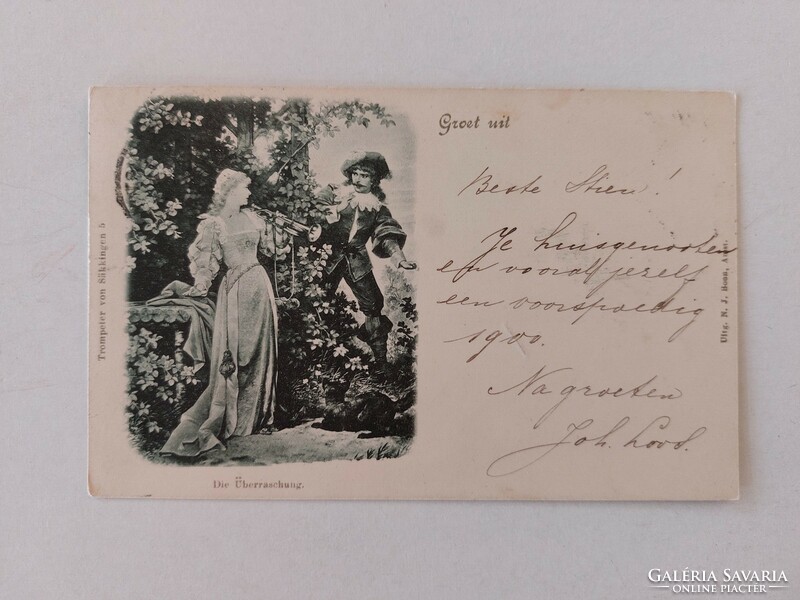 Trompeter von Säkkingen 5
Die Überraschung.
Groet uit
Beste Stien!
Je huisgenooten
en vooral jezelf
een voorspoedig
1900.
Na groeten
Joh. Lood.
Uitg. N. J. Boon, Amst.
GALÉRIA SAVARIA
ONLINE PIACTÉR